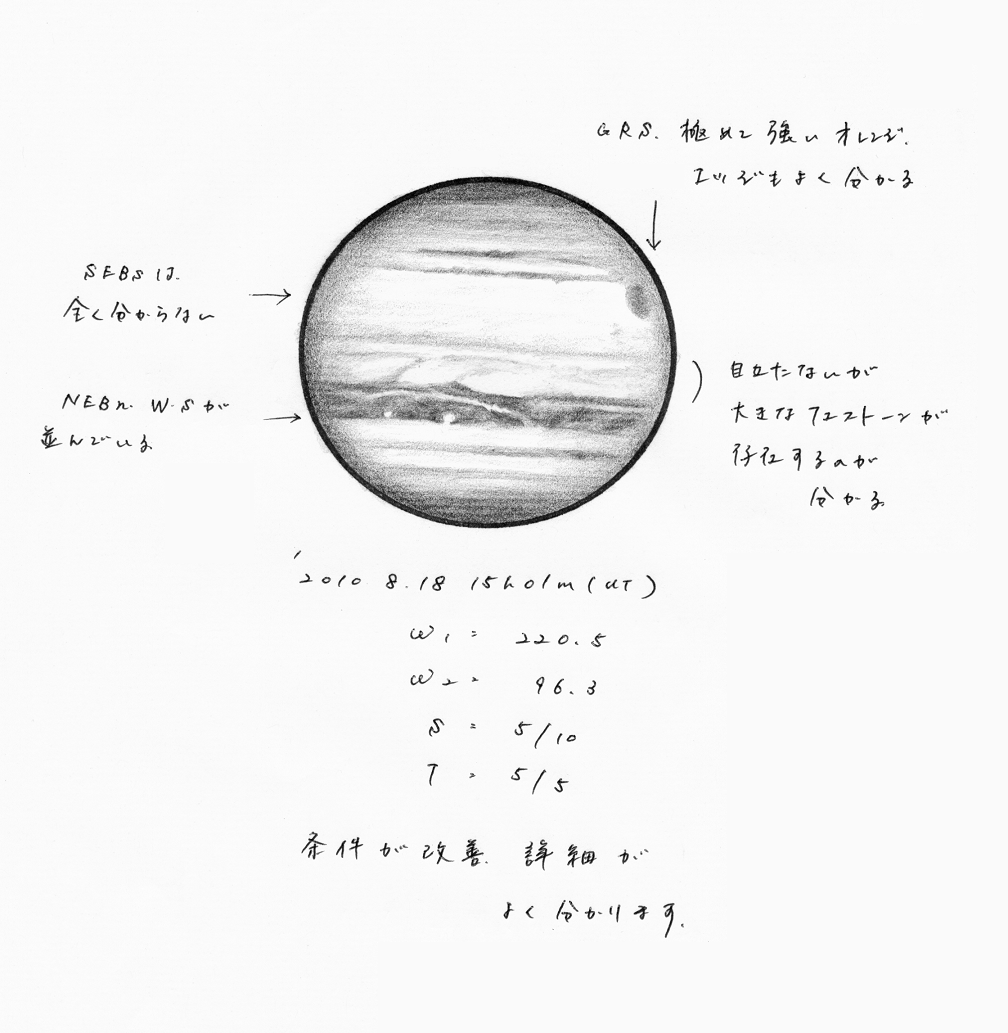 G R S. 極めて強いオレンジ.
エッヂもよく分かる
SEBsは.
全く分からない
NEBn. W.Sが
並んでいる
目立たないが
大きなフェストーンが
存在するのが
分かる
'2010 8.18 15h01m (UT)
ω1 = 220.5
ω2 = 96.3
S = 5/10
T = 5/5
条件が改善. 詳細が
よく分かります.